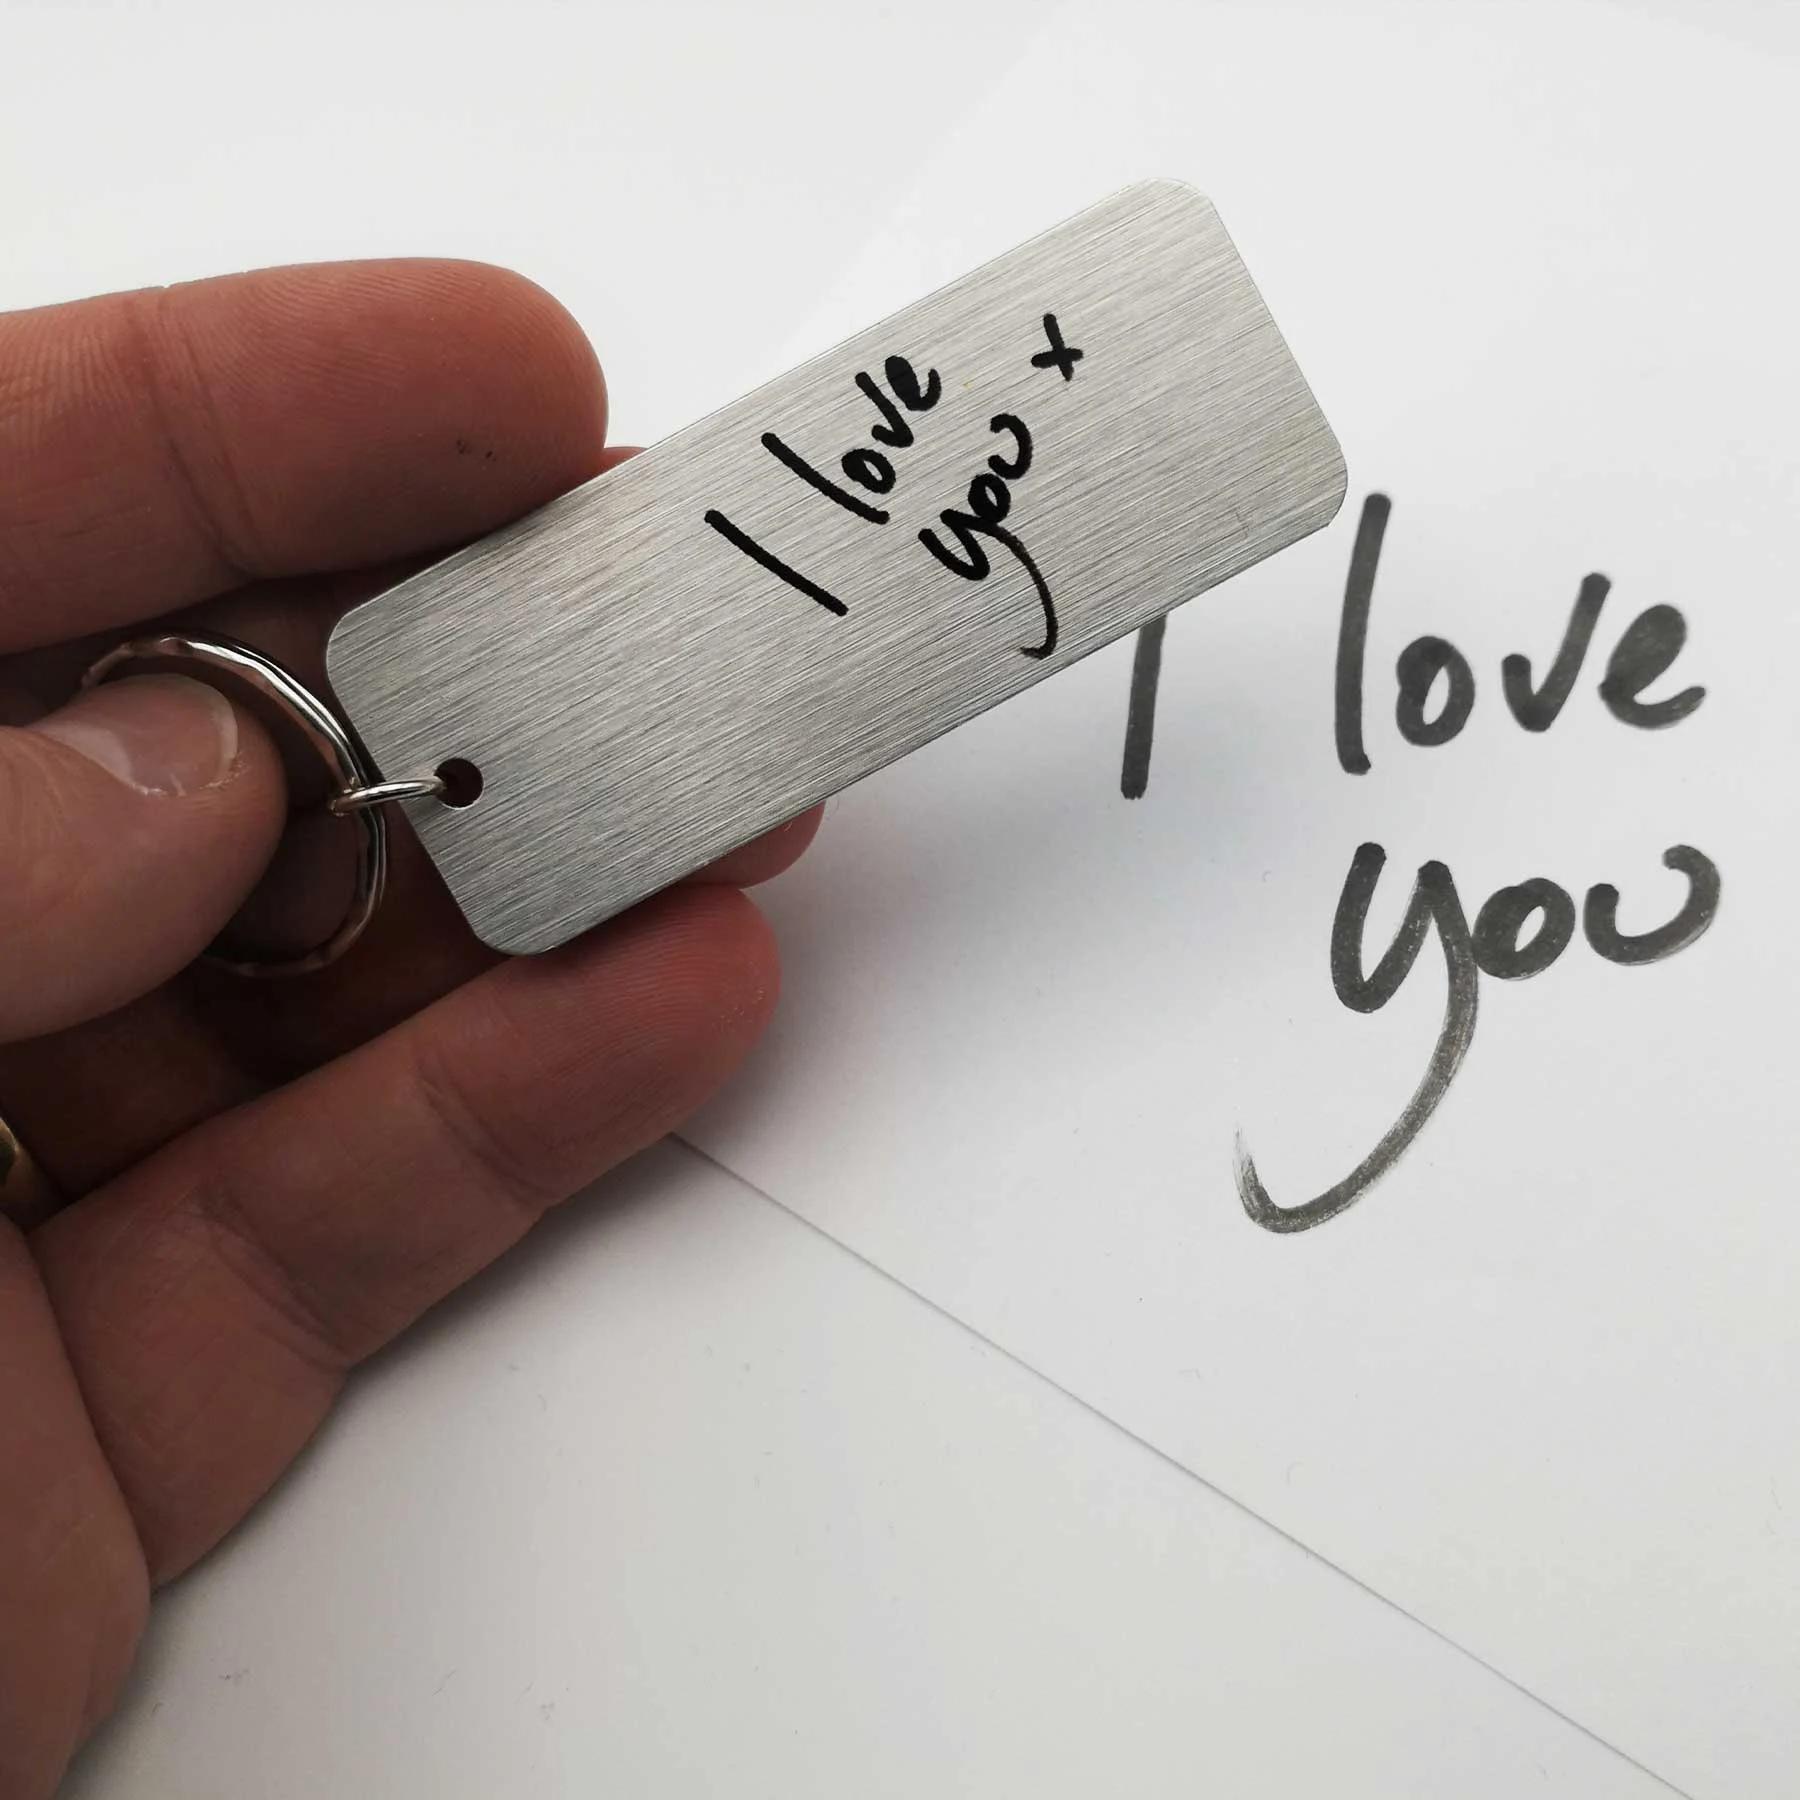 I love
you x
I love
you